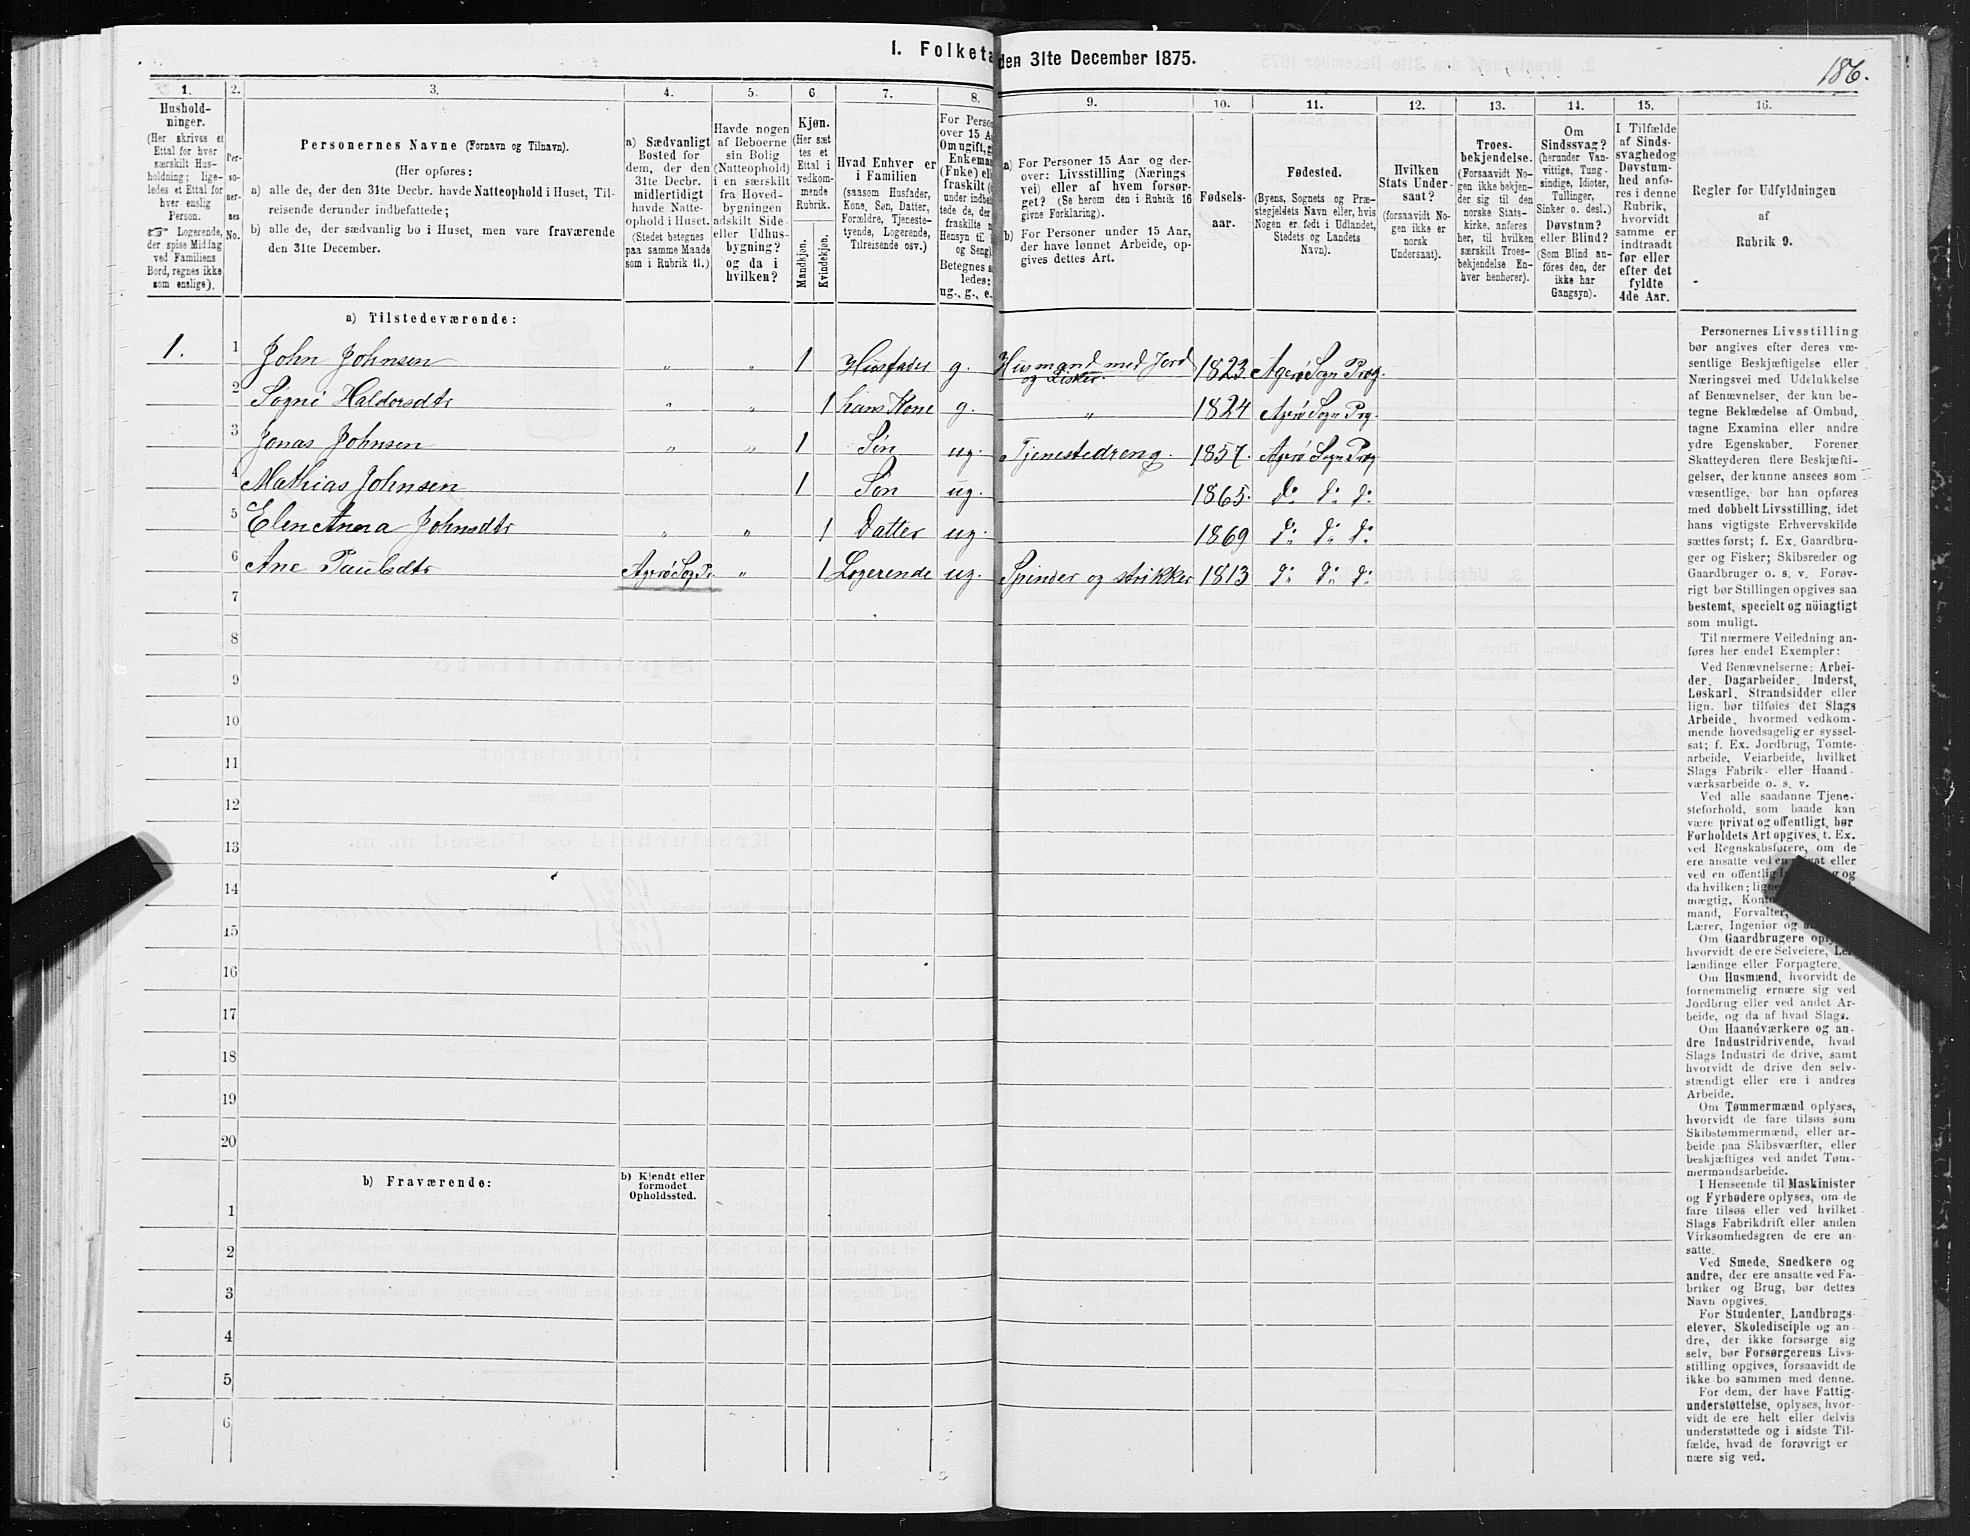 186.
1. Folketa den 31te December 1875.
1. 2. 3. 4. 5. 6. 7. 8. 9. 10. 11. 12. 13. 14. 15. 16.
Hushold-
ninger.
(Her skrives et
Ettal for hver
særskilt Hus-
holdning; lige-
ledes et Ettal for
hver enslig
Person.
☞ Logerende,
der spise Middag
ved Familiens
Bord, regnes ikke
som enslige).
Per-
so-
ner-
nes
No.
Personernes Navne (Fornavn og Tilnavn).
(Her opføres:
a) alle de, der den 31te Decbr. havde Natteophold i Huset, Til-
reisende derunder indbefattede;
b) alle de, der sædvanlig bo i Huset, men vare fraværende
den 31te December.
a) Sædvanligt
Bosted for
dem, der den
31te Decbr.
midlertidigt
havde Natte-
ophold i Huset.
(Stedet betegnes
paa samme Maade
som i Rubrik 11.)
Havde nogen
af Beboerne
sin Bolig
(Natteophold)
i en særskilt
fra Hoved-
bygningen
adskilt Side-
eller Udhus-
bygning?
og da i
hvilken?
Kjøn.
(Her sæt-
tes et
Ettal i
vedkom-
mende
Rubrik.
Mandkjøn.
Kvindekjøn.
Hvad Enhver er
i Familien
(saasom Husfader,
Kone, Søn, Datter,
Forældre, Tjeneste-
tyende, Logerende,
Tilreisende osv.)
For Person
over 15 A
Om ugift, g
Enkeman
(Enke) ell
fraskilt (
under indbe
tede de, der
fraskilte
Hensyn til
og Seng)
Betegnes s
ledes:
ug., g., e.
a) For Personer 15 Aar og der-
over: Livsstilling (Nærings-
vei) eller af hvem forsør-
get? (Se herom den i Rubrik 16
givne Forklaring).
b) For Personer under 15 Aar,
der have lønnet Arbeide, op-
gives dettes Art.
Fødsels-
aar.
Fødested.
(Byens, Sognets og Præ-
stegjeldets Navn eller, hvis
Nogen er født i Udlandet,
Stedets og Landets
Navn).
Hvilken
Stats Under-
saat?
(forsaavidt No-
gen ikke er
norsk
Undersaat).
Troes-
bekjendelse.
(Forsaavidt No-
gen ikke bekjen-
der sig til den
norske Stats-
kirke, anføres
her, til hvilken
særskilt Troes-
bekjendelse En-
hver henhører).
Om
Sindssvag?
(herunder Van-
vittige, Tung-
sindige, Idioter,
Tullinger,
Sinker o. desl.)
Døvstum?
eller Blind?
(Som Blind an-
føres den, der
ikke har
Gangsyn).
I Tilfælde
af Sinds-
svaghed og
Døvstum-
hed anfø-
res i denne
Rubrik,
hvorvidt
samme er
indtraadt
før eller
efter det
fyldte
4de Aar.
Regler for Udfyldningen
af
Rubrik 9.
a) Tilstedeværende:
1. 1 John Johnsen „ „ 1 Husfader g. Husmand med Jord og Fisker. 1823. Agerø Sogn Præg.
2 Signe Haldorsdtr „ „ 1 hans Kone g. „ 1824 Agerø Sogn Prg.
3 Jonas Johnsen „ „ 1 Søn ug. Tjenestedreng. 1857. Agerø Sogn Præg
4 Mathias Johnsen 1 Søn ug. 1865. do do do
5 Elen Anna Johnsdtr „ „ 1 Datter ug. 1869 do do do
6 Ane Paulsdtr Agerø Sog Pr. „ 1 Logerende ug. Spinder og strikker 1813 do do do
7
8
9
10
11
12
13
14
15
16
17
18
19
20
b) Fraværende:
b) Kjendt eller
formodet
Opholdssted.
1
2
3
4
5
6
Personernes Livsstilling
bør angives efter deres væ-
sentlige Beskjæftigelse eller
Næringsvei med Udelukkelse
af Benævnelser, der kun be-
tegne Beklædelse af Ombud,
tagne Examina eller andre
ydre Egenskaber. Forener
Skatteyderen flere Beskjæfti-
gelser, der kunne ansees som
væsentlige, bør han opføres
med dobbelt Livsstilling, idet
hans vigtigste Erhvervskilde
sættes først; f. Ex. Gaardbru-
ger og Fisker; Skibsreder og
Gaardbruger o. s. v. Forøv-
rigt bør Stillingen opgives saa
bestemt, specielt og nöiagtigt
som muligt.
Til nærmere Veiledning an-
føres her endel Exempler:
Ved Benævnelserne: Arbei-
der, Dagarbeider, Inderst,
Løskarl, Strandsidder eller
lign. bør tilføies det Slags
Arbeide, hvormed vedkom-
mende hovedsagelig er syssel-
sat; f. Ex. Jordbrug, Tomte-
arbeide, Veiarbeide, hvilket
Slags Fabrik- eller Haand-
værksarbeide o. s. v.
Ved alle saadanne Tjene-
steforhold, som baade kan
være privat og offentligt, bør
Forholdets Art opgives, t. Ex.
ved Regnskabsførere, om de
ere ansatte ved en privat eller
ved en offentlig og
da hvilken;
mægtig,
mand, Forvalter,
Lærer, Ingeniør og
Om Gaardbrugere
hvorvidt de ere Selveiere, Lei-
lændinge eller Forpagtere.
Om Husmænd, hvorvidt de
fornemmelig ernære sig ved
Jordbrug eller ved andet Ar-
beide, og da af hvad Slags.
Om Haandværkere og an-
dre Industridrivende, hvad
Slags Industri de drive, samt
hvorvidt de drive den selv-
stændigt eller ere i andres
Arbeide.
Om Tømmermænd oplyses,
hvorvidt de fare tilsøs som
Skibstømmermænd, eller ar-
beide paa Skibsværfter, eller
beskjæftiges ved andet Tøm-
mermandsarbeide.
I Henseende til Maskinister
og Fyrbødere oplyses, om de
fare tilsøs eller ved hvilket
Slags Fabrikdrift eller anden
Virksomhedsgren de ere an-
satte.
Ved Smede, Snedkere og
andre, der ere ansatte ved Fa-
briker og Brug, bør dettes
Navn opgives.
For Studenter, Landbrugs-
elever, Skoledisciple og an-
dre, der ikke forsørge sig
selv, bør Forsørgerens Livs-
stilling opgives, forsaavidt de
ikke bo sammen med denne.
For dem, der have Fattig-
understøttelse, oplyses, hvor-
vidt de ere helt eller delvis
understøttede og i sidste Til-
fælde, hvad de forøvrigt er-
nære sig ved.